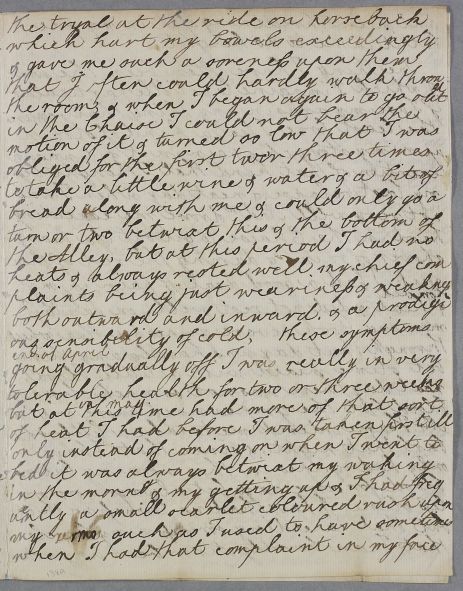 the tryal at the ride on horseback
which hurt my bowels exceedingly
& gave me such a soreness upon them
that I often could hardly walk throu
the room, & when I began again to go out
in the Chaise I could not bear the
motion of it & turned so low that I was
obliged for the first two or three times
to take a little wine & water & a bit of
bread along with me & could only go a
turn or two betwixt this & the bottom of
the Alley, but at this period I had no
heats & always rested well my chief com
plaints being just weariness & weakness
both outward and inward, & a prodigi
ous sensibility of cold, these symptoms
end of April
going gradually off I was really in very
tolerable health for two or three weeks
but at this time had more of that sort
of heat I had before I was taken first ill
only instead of coming on when I went to
bed it was always betwixt my waking
in the morng & my getting up & I had freq
uently a small scarlet coloured rash upon
my arms such as I used to have sometimes
when I had that complaint in my face